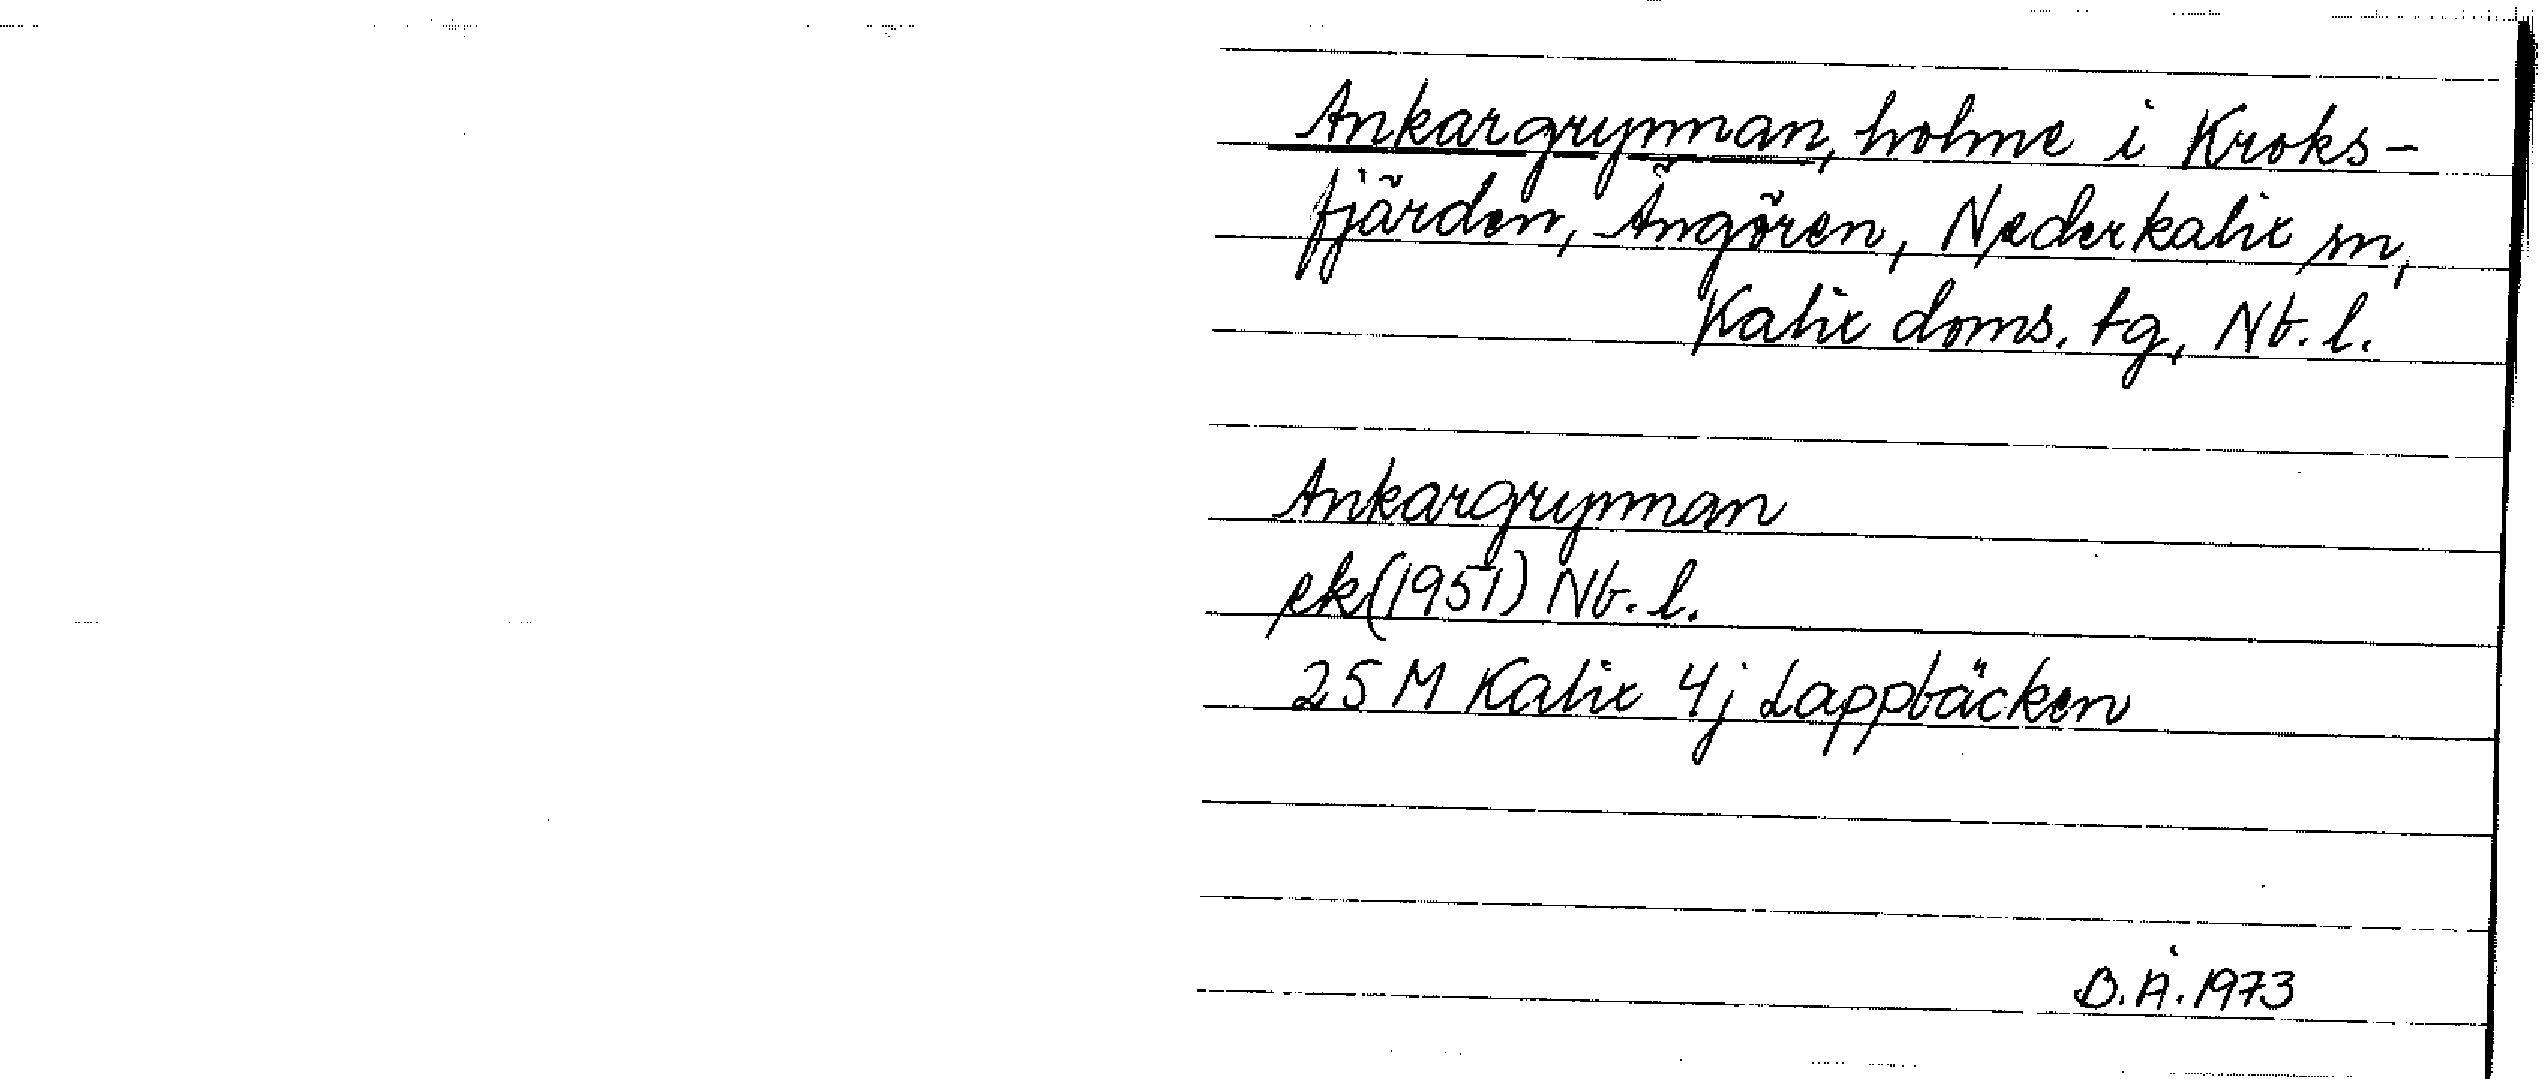 Ankargrynnan, holme i Kroks-
fjärden, Ängören, Nederkalix sn,
Kalix doms. tg, Nb. l.
Ankargrynnan
ek(1951) Nb. l.
25 M Kalix 4j Lappbäcken
B.Å. 1973